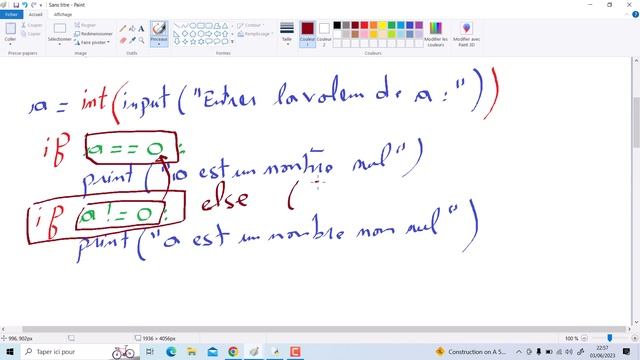 Sans titre - Paint
Fichier Accueil Affichage
Coller
Couper
Copier
Sélectionner
Rogner
Redimensionner
Faire pivoter
Pinceaux
Contour
Remplissage
Taille
Couleur 1
Couleur 2
Modifier les couleurs
Modifier avec Paint 3D
Presse-papiers Image Outils Formes Couleurs
a = int(input("Entrer la valeur de a :"))
if a == 0 :
print ("a est un nombre nul")
if a != 0 : else (
print ("a est un nombre non nul")
996, 902px 1936 × 4056px 100 %
Taper ici pour
Construction on A 5...
22:57
01/06/2023